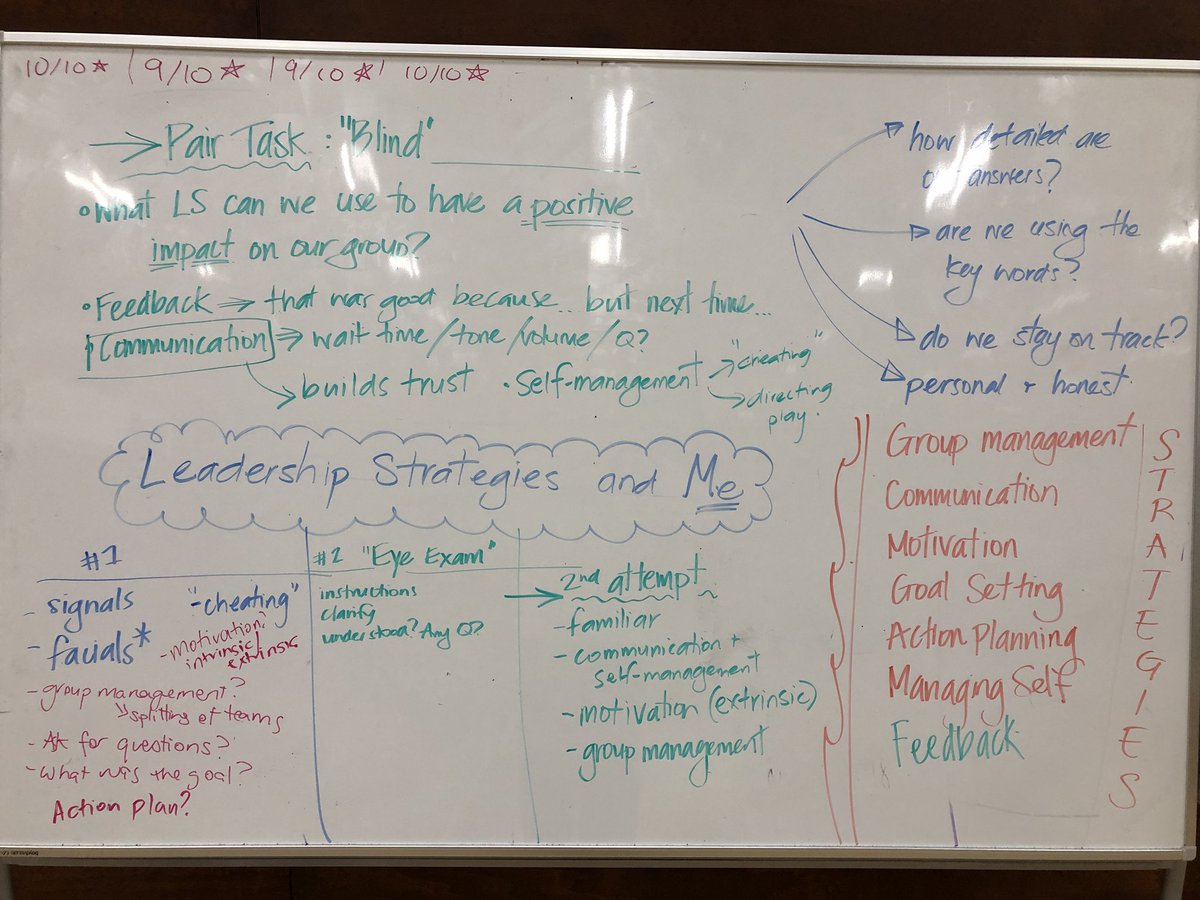 10/10☆ | 9/10☆ | 9/10☆ | 10/10☆
→ Pair Task : "Blind"
• What LS can we use to have a positive
impact on our group?
• Feedback ⇒ that was good because.. but next time...
Communication ⇒ wait time/tone/volume/Q?
→ builds trust
• Self-management
→ "cheating"
→ directing
play.
how detailed are
answers?
are we using the
key words?
do we stay on track?
personal + honest
Leadership Strategies and Me
#1
- signals
- facials*
"-cheating"
- motivation?
intrinsic/
extrinsic
- group management?
⇒ splitting of teams
- Ask for questions?
- What was the goal?
Action plan?
#2 "Eye Exam"
instructions
clarify
understood? Any Q?
→ 2nd attempt
- familiar
- communication +
self-management
- motivation (extrinsic)
- group management
Group management
Communication
Motivation
Goal Setting
Action Planning
Managing Self
Feedback
STRATEGIES